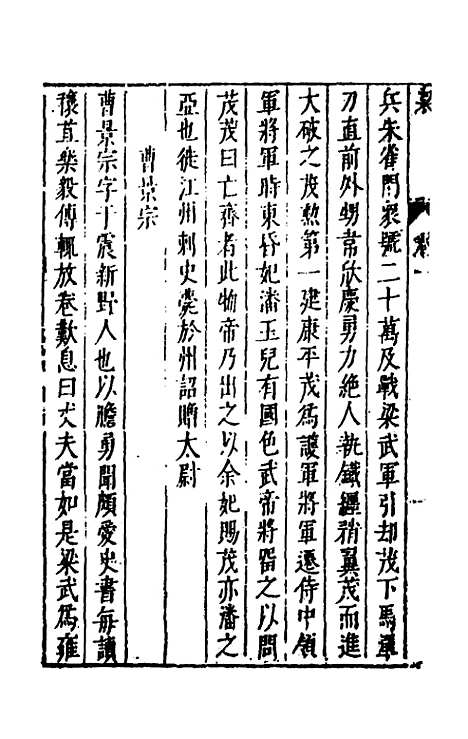 兵朱雀門衆號二十萬及戰梁武軍引却茂下馬單
刃直前外甥韋欣慶勇力絕人執鐵纏矟翼茂而進
大破之茂勲第一建康平茂爲護軍將軍遷侍中領
軍將軍時東昏妃潘玉兒有國色武帝將留之以問
茂茂曰亡齊者此物帝乃出之以余妃賜茂亦潘之
亞也徙江州刺史薨於州詔贈太尉
曹景宗
曹景宗字子震新野人也以膽勇聞頗愛史書每讀
穰苴樂毅傳輒放卷歎息曰丈夫當如是梁武爲雍